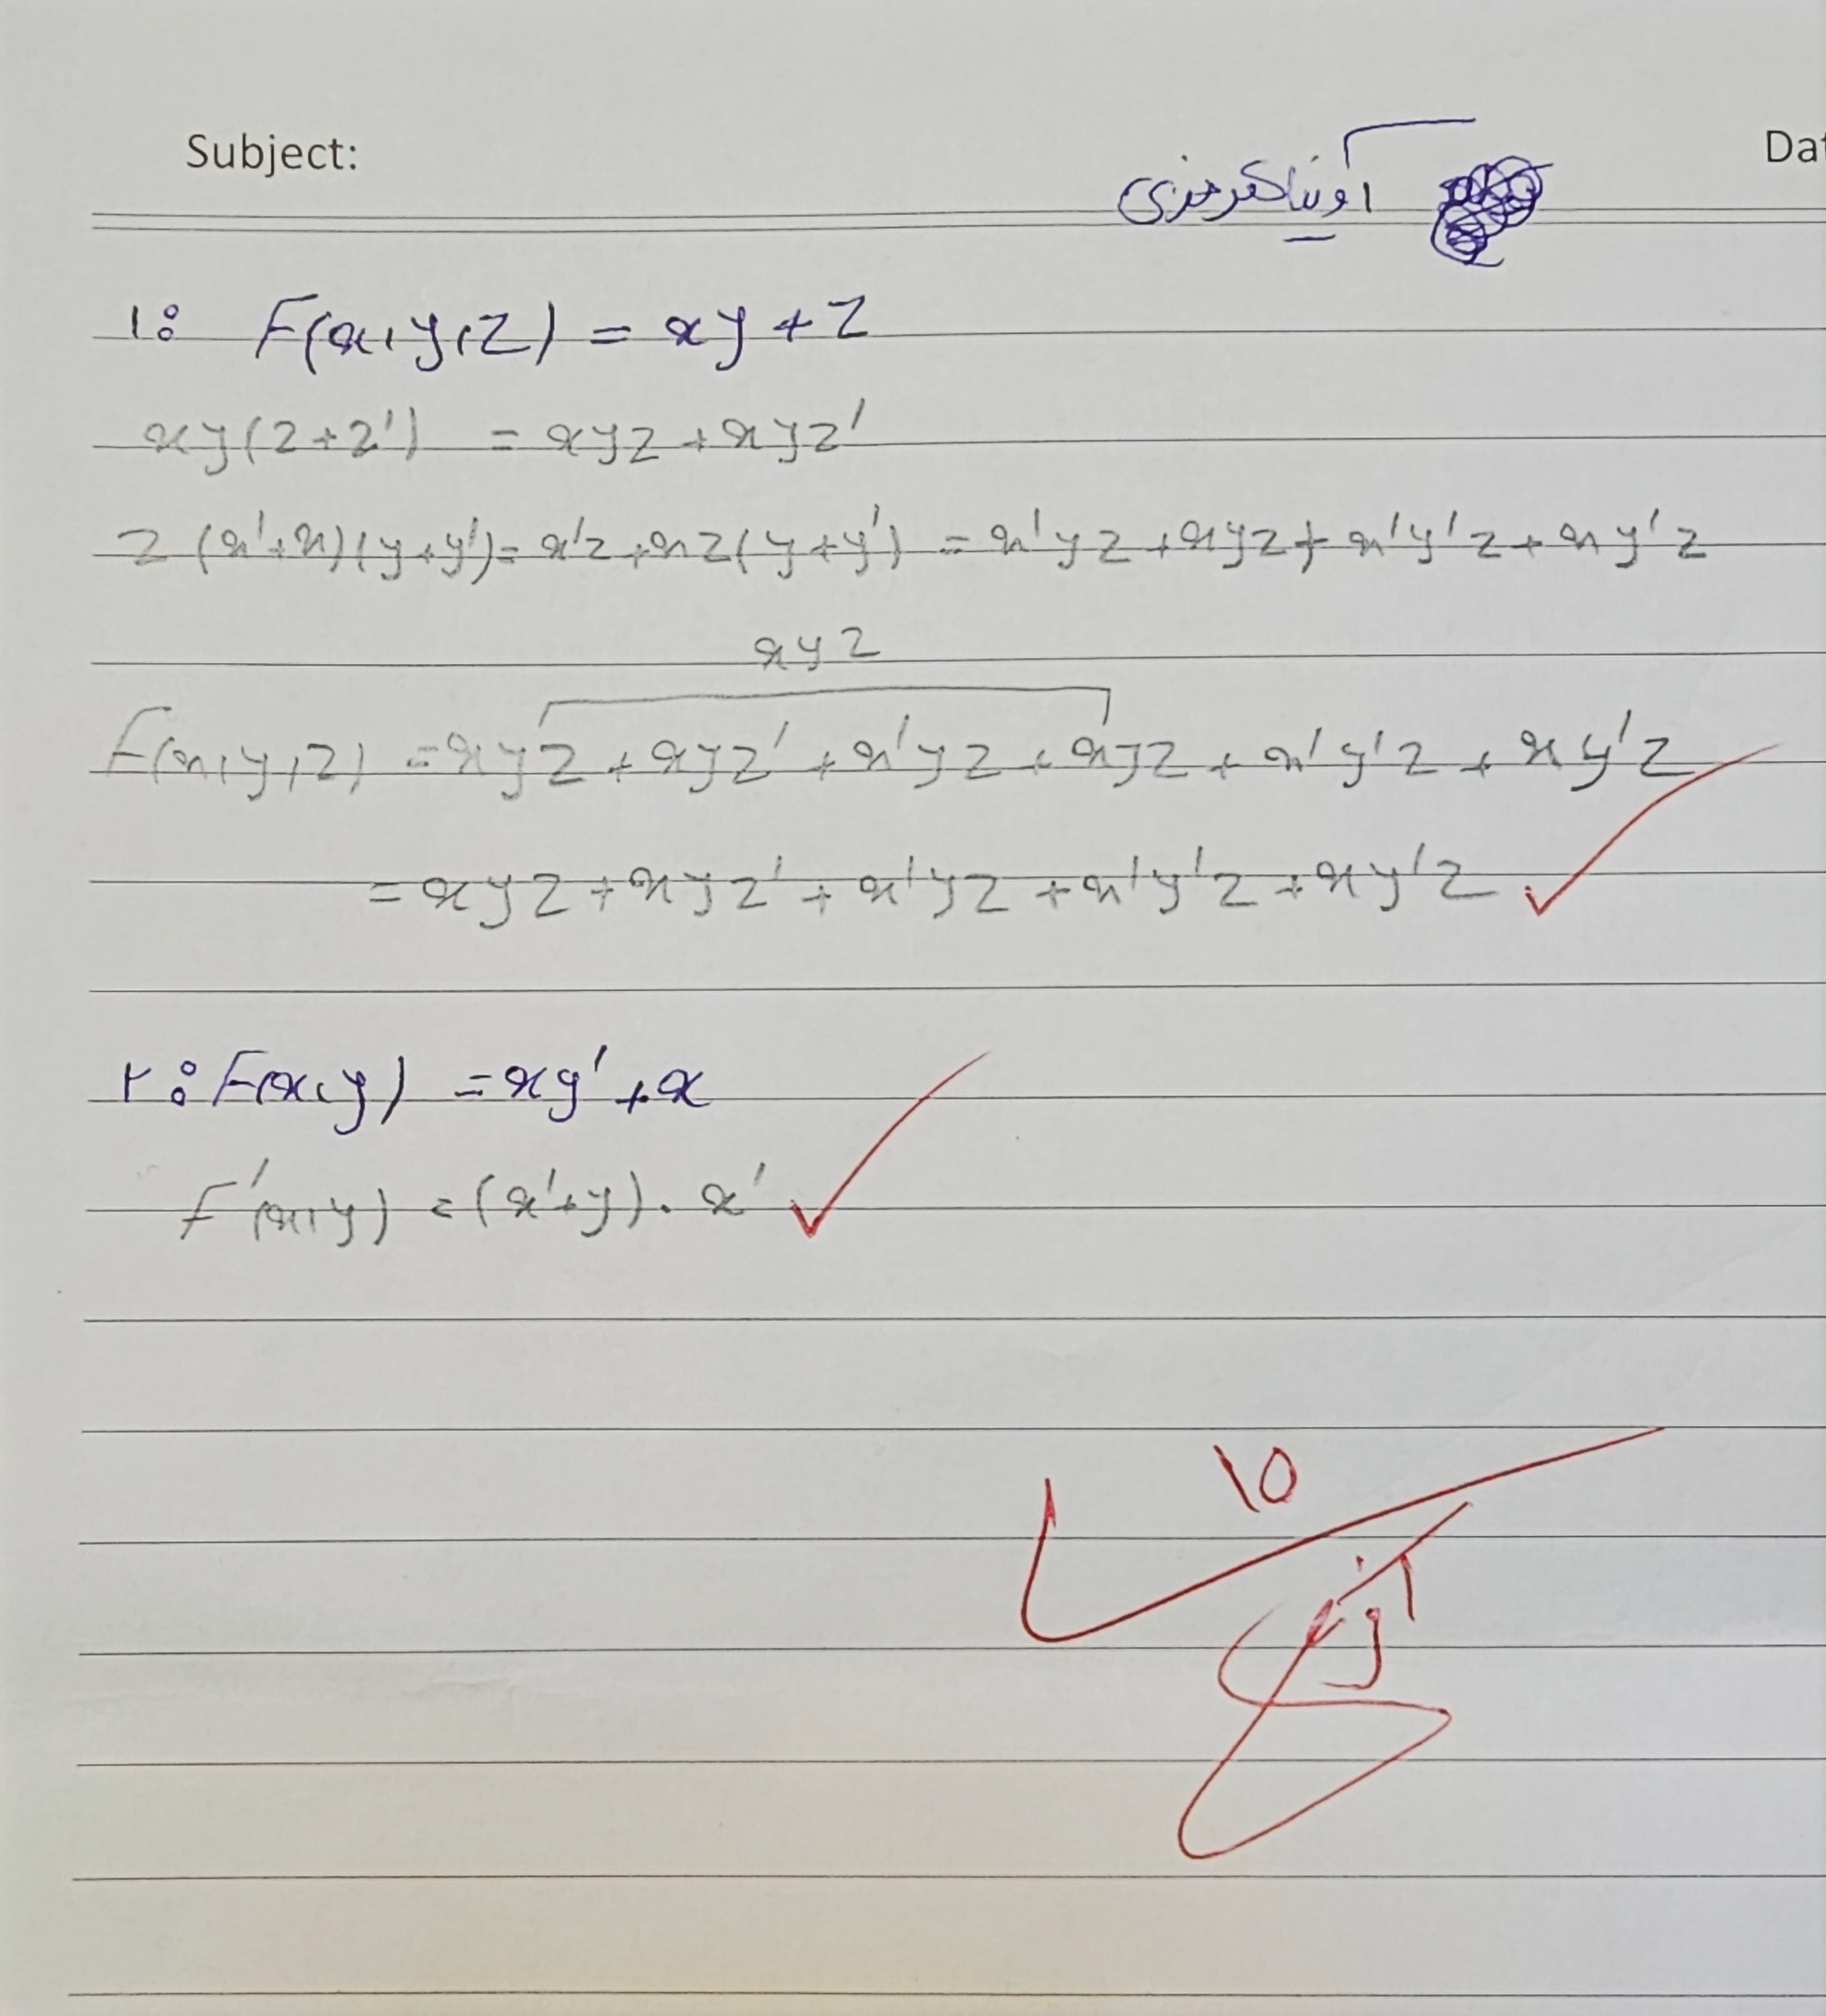 Subject:
Dat
1: F(x,y,z) = xy + z
xy(z+z') = xyz + xyz'
z (x'+x)(y+y') = x'z + xz(y+y') = x'yz + xyz + x'y'z + xy'z
xyz
F(x,y,z) = xyz + xyz' + x'yz + xyz + x'y'z + xy'z
= xyz + xyz' + x'yz + x'y'z + xy'z
۲: F(x,y) = xy' + x
F'(x,y) = (x'+y) . x'
10